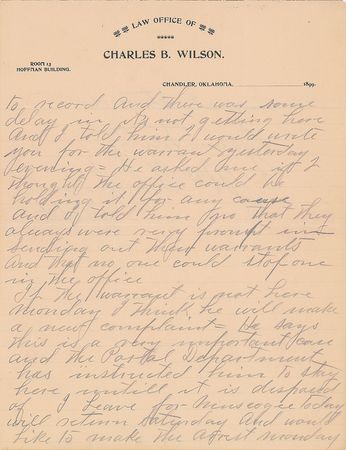 LAW OFFICE OF
CHARLES B. WILSON.
ROOM 13
HOFFMAN BUILDING.
CHANDLER, OKLAHOMA. 1899.
to record and there was some
delay in its not getting here
And I told him I would write
you for the warrant yesterday
evening - He asked me if I
thought the office could be
holding it for any cause
and I told him no that they
always were very prompt in
sending out these warrants
and that no one could stop one
in the office
If the warrant is not here
monday I think he will make
a new complaint - He says
this is a very important case
and the Postal Department
has instructed him to stay
here untill it is disposed
of I leave for muscogee today
will return Saturday and would
like to make the arrest monday